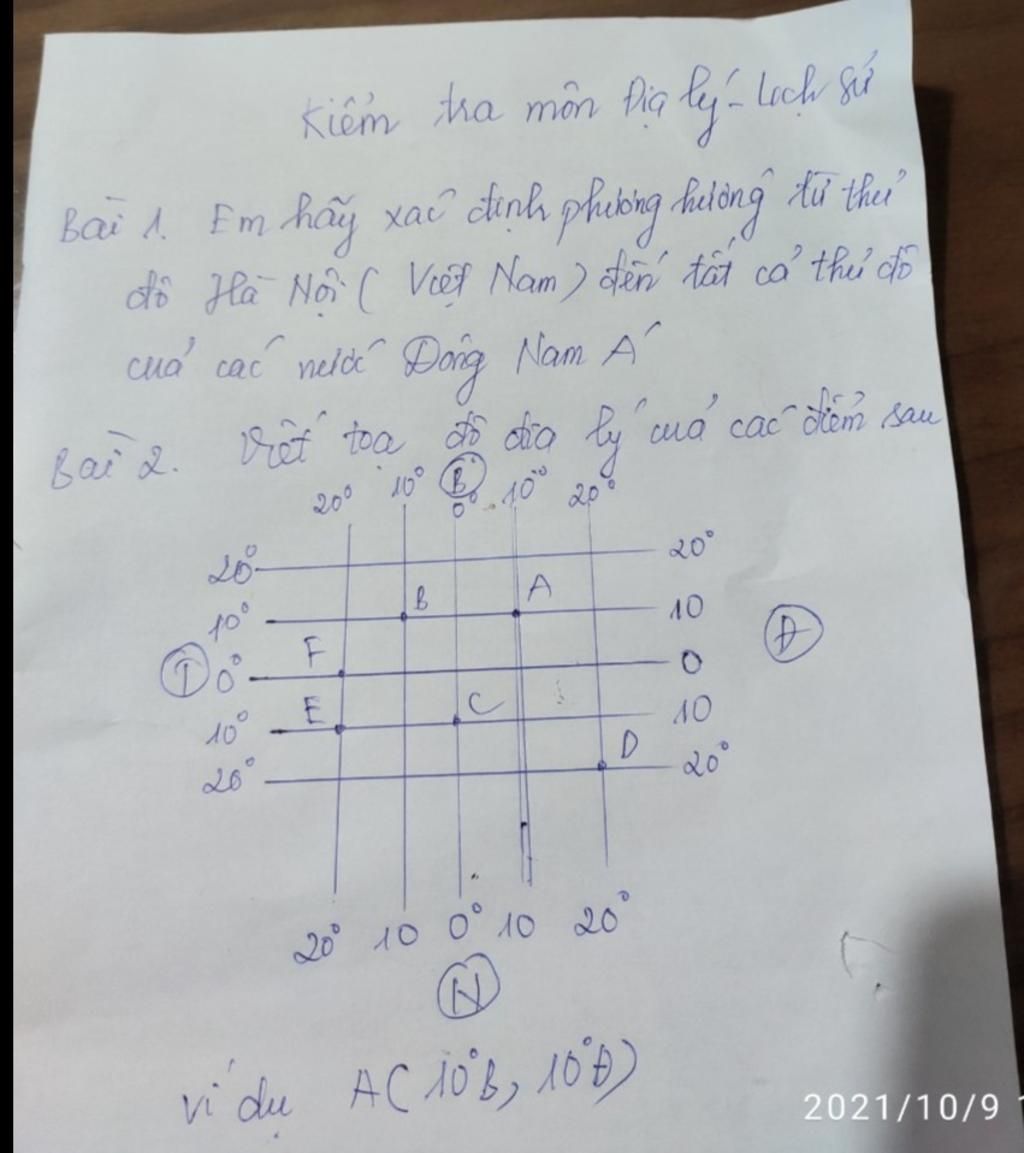 Kiểm tra môn Địa lý - Lịch sử
Bài 1. Em hãy xác định phương hướng từ thủ
đô Hà Nội (Việt Nam) đến tất cả thủ đô
của các nước Đông Nam Á
Bài 2. Viết tọa độ địa lý của các điểm sau
20° 10° B 0° 10° 20°
20° 20°
B A
10° 10
Đ
F
T 0° 0
E C
10° 10
D
20° 20°
20° 10 0° 10 20°
N
ví dụ A(10°B, 10°Đ)
2021/10/9 1